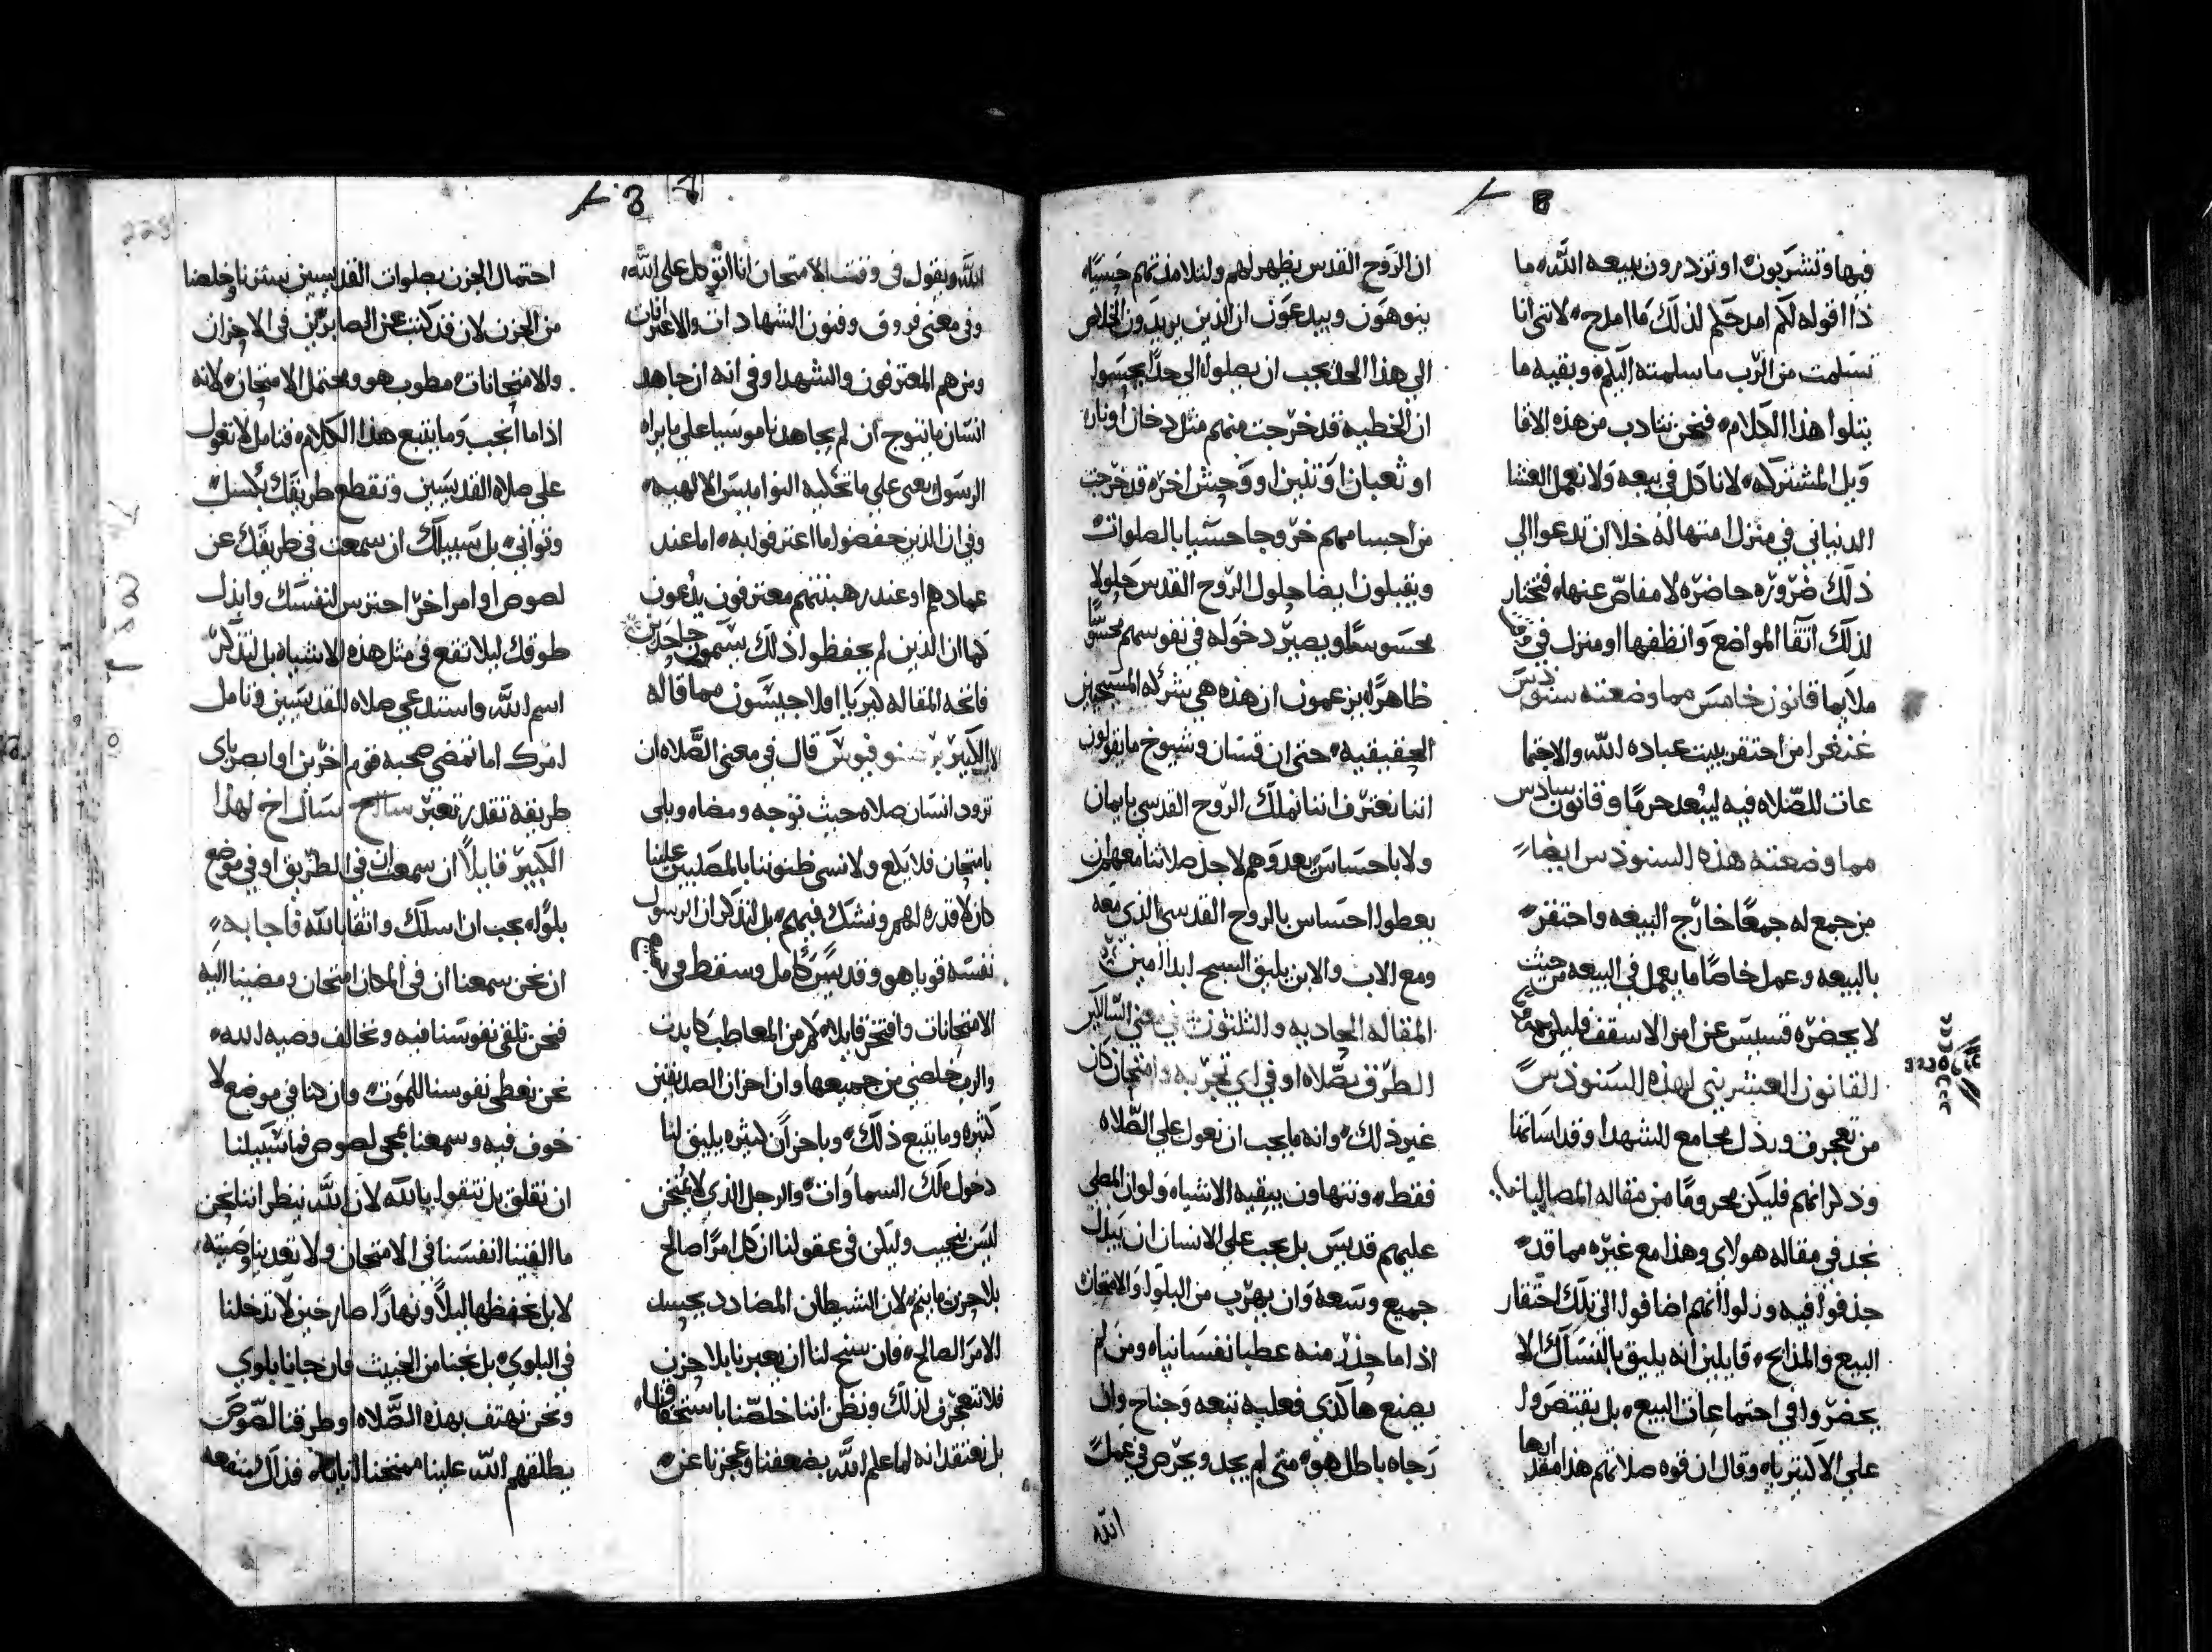 فيها وتشربون او تزدرون ببيعه الله ما
ذا اقوله لكم امدحكم لذلك ما امدح لانني انا
تسلمت من الرب ما سلمته اليكم وبقيه ما
يتلوا هذا الكلام فنحن نتادب من هذه الاقا
ويل المشتركه لا ناكل في بيعه ولا نعمل العشا
الدنياني في منزل امتهاله خلا ان تدعوا الي
ذلك ضروره حاضره لا مفاص عنها فتختار
لذلك اتقا المواضع وانظفها او منزل في
ملايما قانون خامس مما وضعته سنودس
غنغرا من احتقر بيت عباده الله والاجتما
عات للصلاه فيه ليبعد حرما وقانون سادس
مما وضعته هذه السنوذس ايضا
من جمع له جمعا خارج البيعه واحتقر
بالبيعه وعمل خاصا ما يعمل في البيعه من حيث
لا يحضره قسيس عن امر الاسقف فليكن
القانون العشريني لهذه السنوذس
من تعجرف ورذل مجامع الشهدا وقد اساتمنا
وذكرانهم فليكن محروما من مقاله المصاليانـ
نجد في مقاله هولاي وهذا مع غيره مما قد
حذفوا فيه وزلوا انهم اضافوا الى تلك احتقار
البيع والمذابح قايلين انه يليق بالنساك الا
يحضروا في اجتماعات البيع بل يقتصروا
علي الاكتيرياه وقال ان قوه صلاتهم هذا مقدارها
ان الروح القدس يظهر لهم ولتلامذتهم حسيا
يتوهون ويبدعون ان الذين يريدون الخلاص
الي هذا الحد يجب ان يصلوا الي حد يحسوا
ان الخطيه قد خرجت منهم مثل دخان او نار
او ثعبان او تنين او وحش اخر قد خرجت
من احسامهم خروجا حسيا بالصلوات
ويقبلون ايضا حلول الروح القدس حلولا
محسوسا ويصير دخوله في نفوسهم محسوسا
ظاهرا يزعمون ان هذه هي شركه المسيحيين
الحقيقيه حتى ان قسان وشيوخ ما يقولون
اننا نعترف اننا نملك الروح القدس بايمان
ولا باحساس بعدوهم لاجل صلاتنا معهم ان
يعطوا احساس بالروح القدس الذي معه
ومع الاب والابن يليق السبح ابدا امين
المقاله الحاديه والثلثون في معنى السالكين
الطرق بصلاه او في اي تجربه وامتحان كان
غير ذلك وانه ما يجب ان نعول على الصلاه
فقط ونتهاون ببقيه الاشياه ولو ان المصلي
عليهم قديس بل يجب علي الانسان ان يبذل
جميع وسعه وان يهرب من البلوا والامتحان
اذا ما حذر منه عطبا نفسانياه ومن لم
يصنع هاكذي فعليه تبعه وجناح وان
رجاه باطل هو متى لم يجد ويحرص في عمل
الله
الله ويقول في وقت الامتحان انا اتوكل على الله
وفي معنى فروق وفنون الشهادات والاعترافات
ومن هم المعترفون والشهدا وفي انه ان جاهد
انسان ما يتوج ان لم يجاهد ناموسيا على ما يراه
الرسول يعنى على ما تحليه النواميس الالهيه
وفي ان الذين حفضوا ما اعترفوا به اما عند
عمادهم او عند رهبنتهم معترفون يدعون
كما ان الذين لم يحفظوا ذلك يسمون جاحدين
فاتحه المقاله كيريا اولاجيسون مما قاله
الكبير برصنوفيوس قال في معنى الصلاه ان
تزود انسان صلاه حيث توجه ومضاه وبلى
بامتحان فلا يلع ولا نسى ظنوننا بالمصليين علينا
كان لا قدره لهم ونشك فيهم بل لنذكر ان الرسول
نفسه قويا هو وقديس كامل وسقط في
الامتحانات وافتخر قايلا كم من المعاطب كابدت
والرب خلصني من جميعها وان احزان الصديقين
كثيره وما يتبع ذلك وباحزان كثيره يليق لنا
دخول ملك السماوات والرجل الذي لا يمتحن
ليس نجيب وليكن في عقولنا ان كل امرا صالح
بلا حزن ما يتم لان الشيطان المضادد يحسد
الامر الصالح فان سنح لنا ان يعبر نا بلا حزن
فلا نتعجرف لذلك ونظن اننا خلصنا باستحقاقنا
بل نعتقد انه لما علم الله بضعفنا وعجزنا عن
احتمال الحزن بصلوات القديسين سترنا وخلصنا
من الحزن لان قد كتب عن الصابرين في الاحزان
والامتحانات مطوب هو ومحتمل الامتحان لانه
اذا ما انجب وما يتبع هذا الكلام فتامل لا تعول
على صلاه القديسين وتقطع طريقك بكسل
وتواني بل سبيلك ان سمعت في طريقك عن
لصوص او امر اخر احترس لنفسك وابذل
طوقك ليلا تقع في مثل هذه الاشياه بل لتذكر
اسم الله واستند على صلاه القديسين وتامل
امرك اما تمضي صحبه قوم اخرين او ابصر باي
طريقه تقدر تعبر سالح سال اخ لهذا
الكبير قايلا ان سمعت ان في الطريق او في موضع
بلوا يجب ان اسلك واثقا بالله فاجابه
ان نحن سمعنا ان في المكان امتحان ومضينا اليه
فنحن نلقى نفوسنا فيه ونخالف وصيه الله
نحن نعطى نفوسنا للموت وان كنا في موضع لا
خوف فيه وسمعنا بمجي لصوص فما سبيلنا
ان نقلق بل نتقول بالله لان الله ينظر اننا نحن
ما القينا انفسنا في الامتحان ولا تعدينا وصيته
لا بل نحفظها ليلا ونهارا صارخين لا تدخلنا
في البلوي بل نجنا من الخبيث فان جانا بلوي
ونحن نهتف بهذه الصلاه او طرقنا لصوص
يطلقهم الله علينا ممتحنا ايانا فذاك منفعه